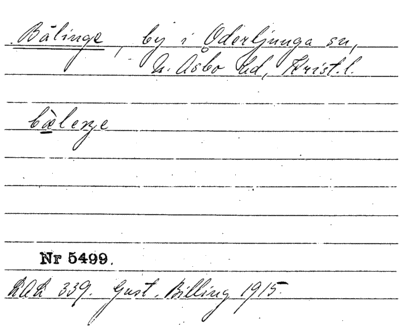 Bälinge, by i Oderljunga sn,
N. Åsbo hd, Krist. l.
bælenge
Nr 5499.
339. Gust. Billing 1915.